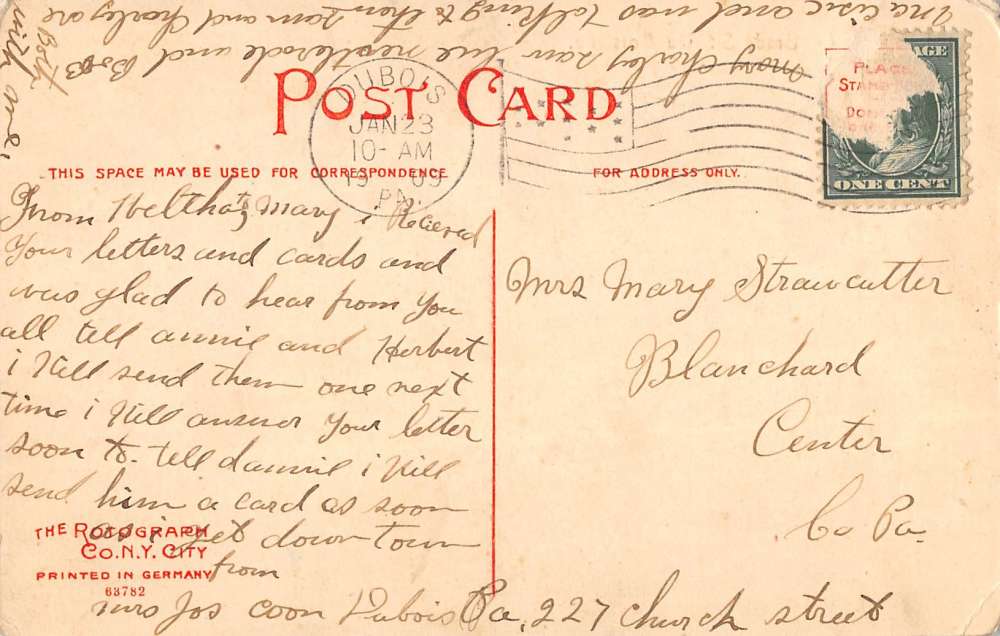 POST CARD
THIS SPACE MAY BE USED FOR CORRESPONDENCE
FOR ADDRESS ONLY.
DUBOIS
JAN 23
10- AM
1909
PA.
PLACE
STAMP
AGE
ONE CENT
From
Mary i Recieved
Your letters and cards and
was glad to hear from You
all tell annie and Herbert
i Kill send them one next
time i Kill answer Your letter
soon to. tell dannie i Kill
send him a card as soon
as i get down Town
from
Mrs Jos Coon Dubois Pa, 227 church street
Mrs Mary Strawcutter
Blanchard
Center
Co Pa.
THE ROTOGRAPH
CO. N.Y. CITY
PRINTED IN GERMANY
63782
mary Charley saw and
and was talking to them Sam and Charley are
Both
with